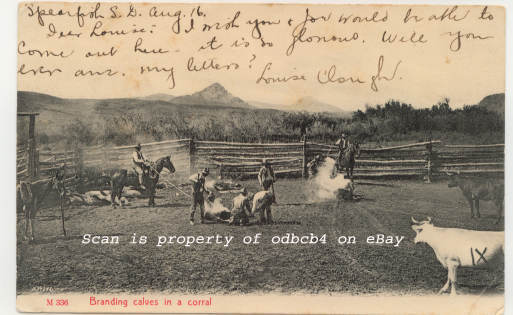 Spearfish S. D. Aug. 16.
Dear Louise: I wish you & Joe would be able to
come out here - it is so glorious. Will you
ever ans. my letters? Louise Clough.
Scan is property of odbcb4 on eBay
IX
M 336 Branding calves in a corral